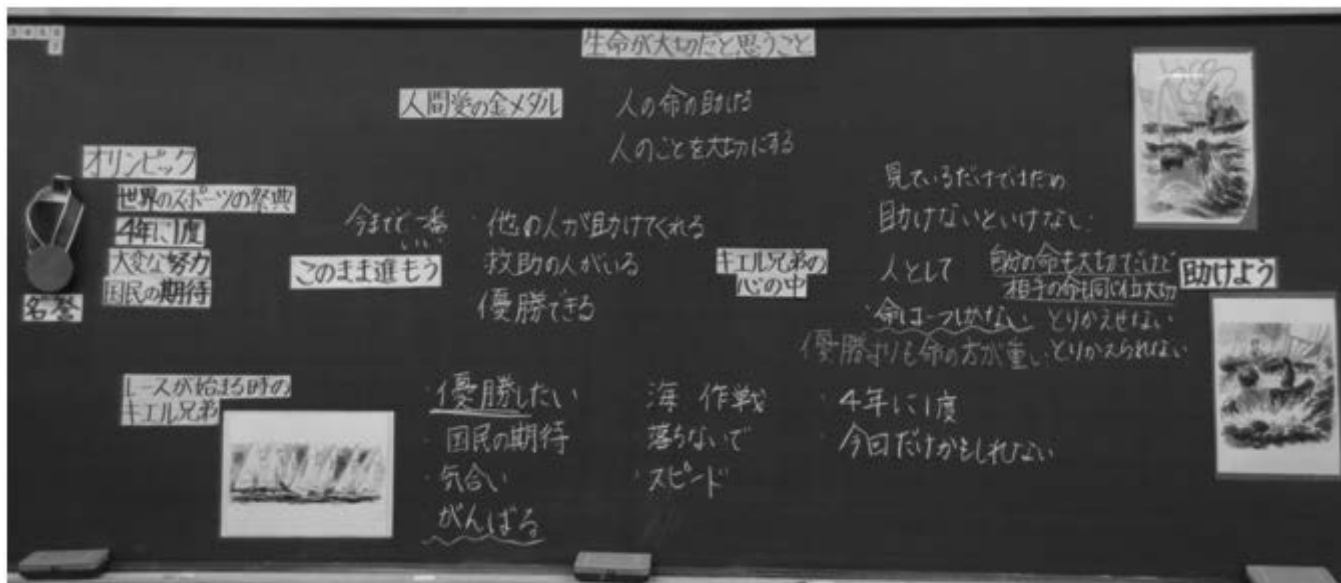 生命が大切だと思うこと
人間愛の金メダル
人の命の助ける
人のことを大切にする
オリンピック
世界のスポーツの祭典
4年に1度
大変な努力
国民の期待
名誉
今までで一番
いい
このまま進もう
・他の人が助けてくれる
救助の人がいる
優勝できる
キエル兄弟の
心の中
見ているだけではだめ
助けないといけない
人として
自分の命も大切だけど
相手の命も同じ位大切
助けよう
・命は一つしかない とりかえせない
優勝よりも命の方が重い とりかえられない
レースが始まる時の
キエル兄弟
・優勝したい
・国民の期待
・気合い
がんばる
海 作戦
落ちないで
・スピード
・4年に1度
・今回だけかもしれない